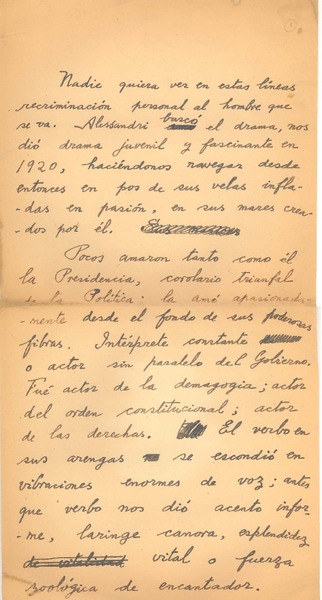 Nadie quiera ver en estas líneas
recriminación personal al hombre que
se va. Alessandri buscó el drama, nos
dió drama juvenil y fascinante en
1920, haciéndonos navegar desde
entonces en pos de sus velas infla-
-das en pasión, en sus mares crea-
-dos por él.
Pocos amaron tanto como él
la Presidencia, corolario triunfal
de la Política; la amó apasionada-
-mente desde el fondo de sus poderosas
fibras. Intérprete constante
o actor sin paralelo del Gobierno.
Fué actor de la demagogia; actor
del orden constitucional; actor
de las derechas. El verbo en
sus arengas se escondió en
vibraciones enormes de voz; antes
que verbo nos dió acento infor-
-me, laringe canora, esplendidez
de vitalidad vital o fuerza
zoológica de encantador.